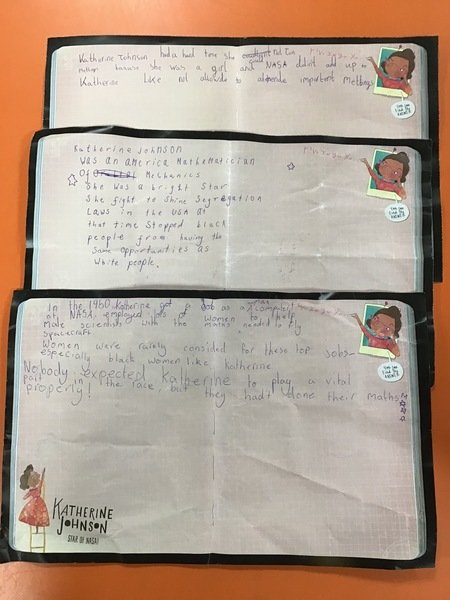 Katherine Johnson had a hard time she could not Join
because she was a girl and NASA didnt add up
Katherine Like not allowde to attende important Metings
KatherinE JOHNSON
was an America Mathematician
Of Mechanics
She was a bright Star
She fight to Shine Segregation
Laws in the USA at
that time Stopped black
people from having the
Same opportunities as
White people.
In the 1960 Katherine got a Job as a computer
at NASA, employed lots of women to help
Male scientists with the maths needed to fly
spacecraft.
Women were rarely consided for these top Jobs-
especially black women like katherine
Nobody expected Katherine to play a vital
part in the race, but they hadt done their maths
properly!
KATHERINE
JOHNSON
STAR OF NASA!